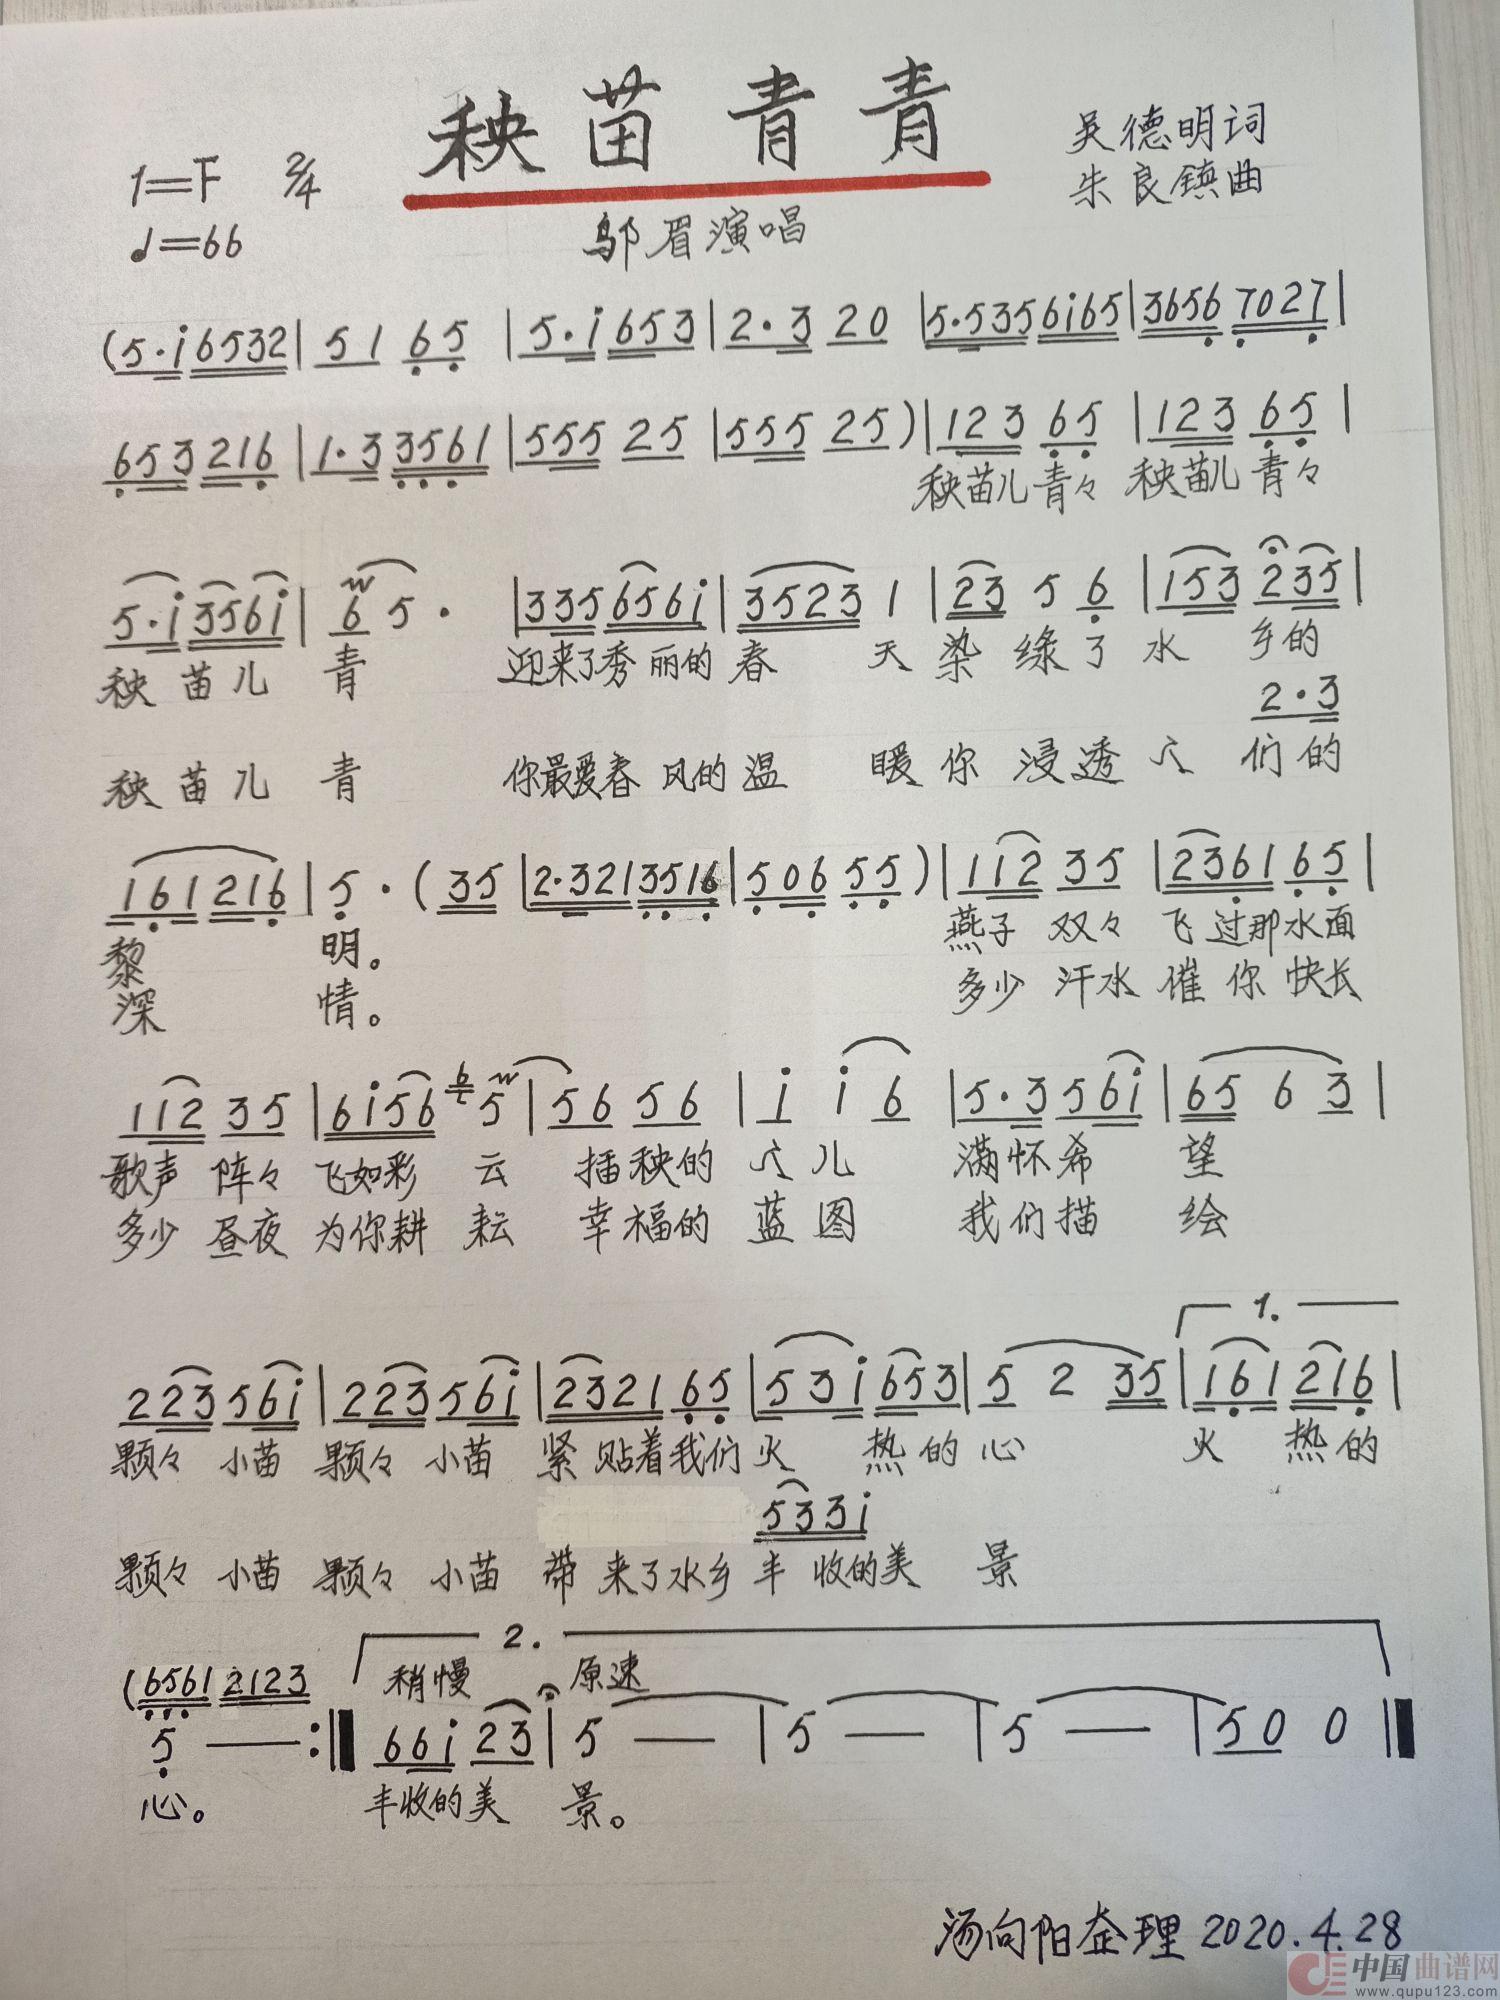 秧苗青青
吴德明词
1=F 2/4
朱良镇曲
♩=66
邬眉演唱
(5·i 6532 | 5 1 6 5 | 5·i 653 | 2·3 20 | 5·535 6i65 | 3656 7027 |
653 216 | 1·3 3561 | 555 25 | 555 25 ) | 123 65 | 123 65 |
秧苗儿青々 秧苗儿青々
5·i 356i | 6 5 · | 335 656i | 3523 1 | 23 5 6 | 153 235 |
秧苗儿 青 迎来了秀丽的春 天 染 绿了 水 乡的
2·3
秧苗儿 青 你最爱春风的温 暖 你 浸透人 们的
161 216 | 5 · ( 35 | 2·321 3516 | 506 55 ) | 112 35 | 2361 65 |
黎 明。 燕子 双々 飞过那水面
深 情。 多少 汗水 催你快长
112 35 | 6i56 6 5 | 56 56 | i i 6 | 5·3 56i | 65 6 3 |
歌声 阵々 飞如彩 云 插秧的 人儿 满怀希 望
多少 昼夜 为你耕 耘 幸福的 蓝图 我们描 绘
1.
223 56i | 223 56i | 2321 65 | 53i 653 | 5 2 35 | 161 216 |
颗々 小苗 颗々 小苗 紧贴着我们火 热的心 火 热的
533i
颗々 小苗 颗々 小苗 带来了水乡丰 收的美 景
2.
(6561 2123 稍慢 原速
5 — :‖ 66i 23 | 5 — | 5 — | 5 — | 50 0 ‖
心。 丰收的美 景。
汤向阳整理 2020.4.28
中国曲谱网
www.qupu123.com